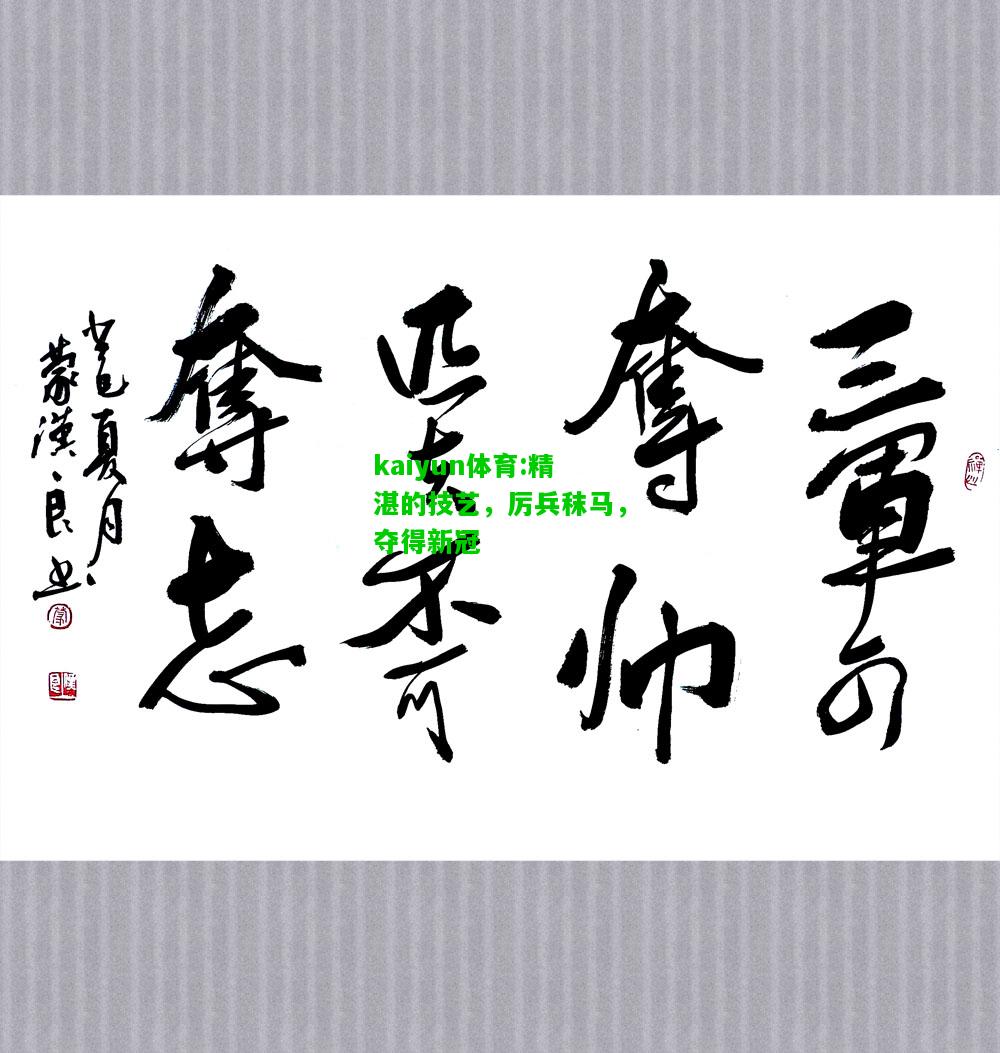 三軍可
奪帅
匹夫不可
奪志
癸巳夏月
蒙漢良书
kaiyun体育:精
湛的技艺，厉兵秣马，
夺得新冠